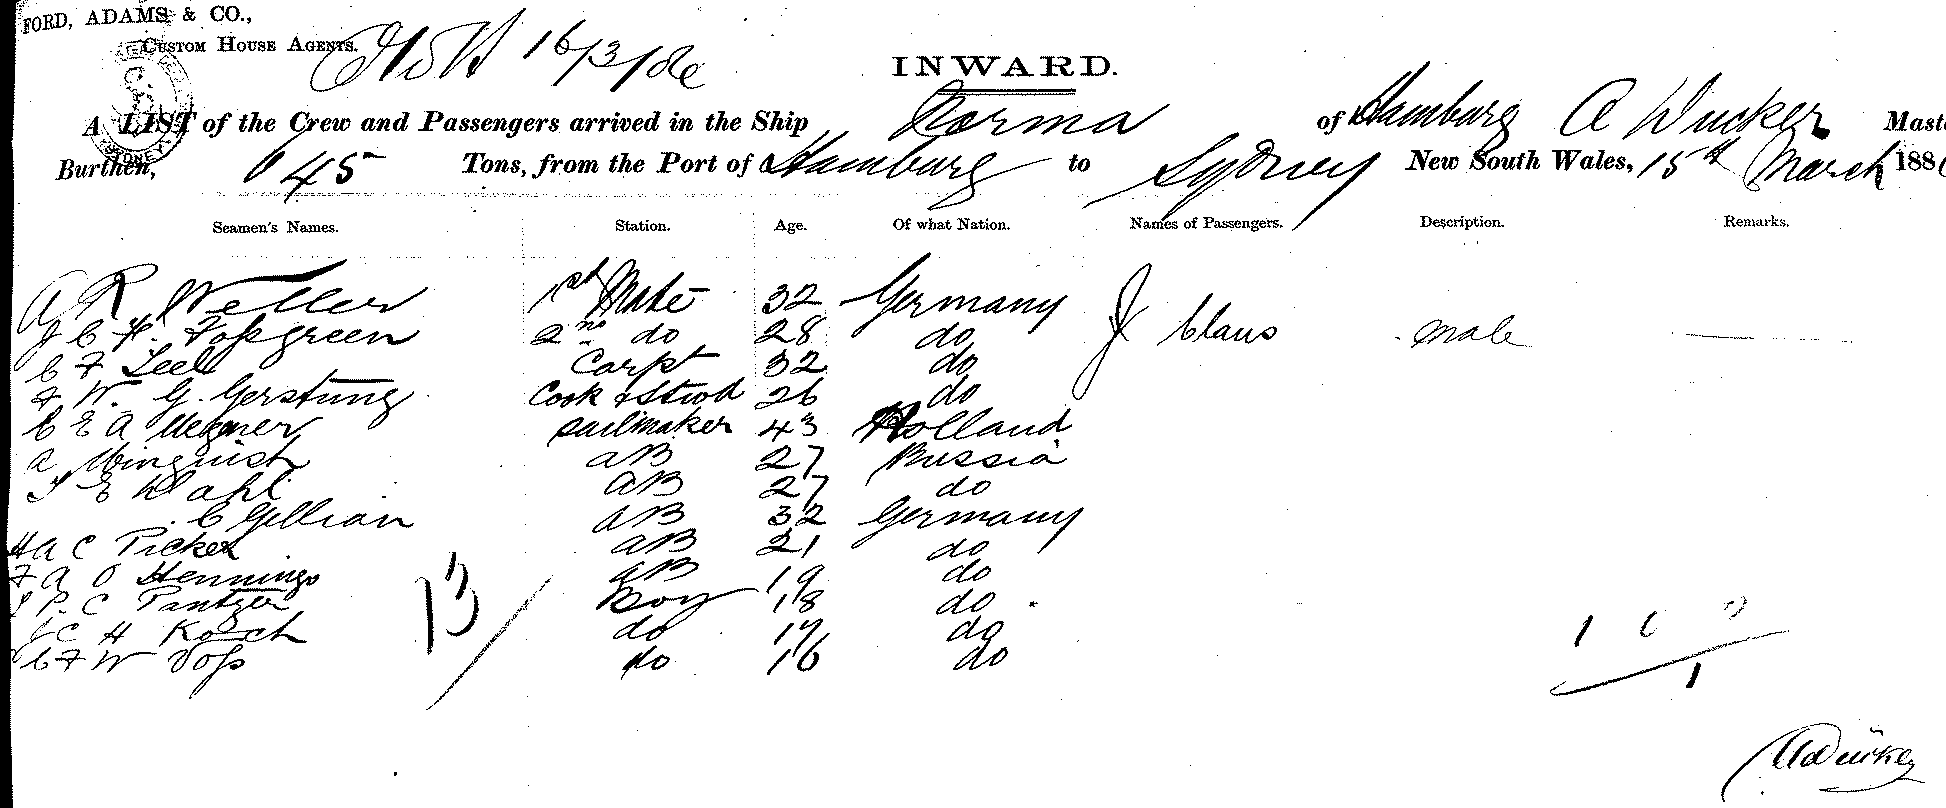 FORD, ADAMS & CO.,
CUSTOM HOUSE AGENTS.
16/3/86
INWARD.
A LIST of the Crew and Passengers arrived in the Ship Norma of Hamburg A Ducker Maste
Burthen, 645 Tons, from the Port of Hamburg to Sydney New South Wales, 15th March 188
Seamen's Names. Station. Age. Of what Nation. Names of Passengers. Description. Remarks.
A R Weller 1st Mate 32 Germany J Claus male
J C H. Fossgreen 2nd do 28 do
C F Seel Carpt 32 do
F W. G. Gerstung Cook & Stwd 26 do
C E A Wegner sailmaker 43 Holland
A Winquist AB 27 Russia
J E Dahl AB 27 do
C Gillian AB 32 Germany
H A C Picker AB 21 do
F A O Hennings AB 19 do
J P. C Pantzer Boy 18 do
J C H Koch do 17 do
C F W Voss do 16 do
13/
1 0 0
1